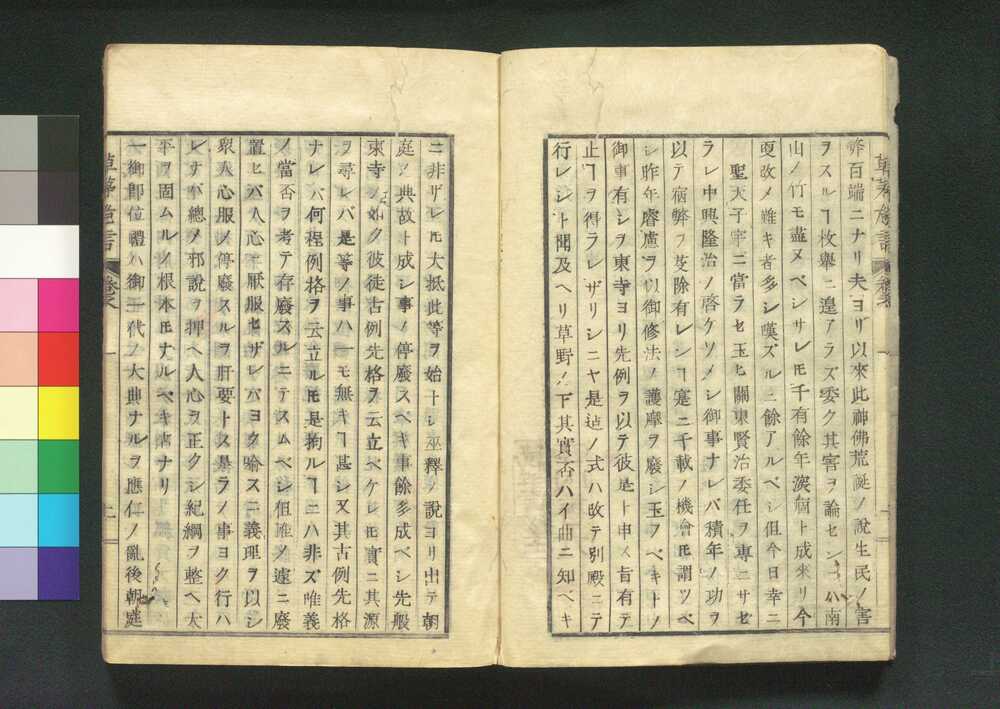 弊百端ニナリ夫ヨリ以來此神佛荒誕ノ説生民ノ害
ヲスルヿ枚擧ニ遑アラズ委ク其害ヲ論センニハ南
山ノ竹モ盡ヌベシサレ𪜈千有餘年深痼ト成來リ今
更改メ難キ者多シ嘆ズルニ餘アルベシ但今日幸ニ
聖天子宇ニ當ラセ玉ヒ關東賢治委任ヲ專ニサセ
ラレ中興隆治ノ啓ケソメシ御事ナレバ積年ノ功ヲ
以テ宿弊ヲ芟除有レンヿ寔ニ千載ノ機會𪜈謂ツベ
シ昨年睿慮ヲ以御修法ノ護摩ヲ廢シ玉フベキトノ
御事有シヲ東寺ヨリ先例ヲ以テ彼是ト申メ旨有テ
止ヿヲ得ラレザリシニヤ是迠ノ式ハ改テ別殿ニテ
行レシト聞及ヘリ草野ノ下其實否ハイ曲ニ知ベキ
ニ非ザレ𪜈大抵此等ヲ始トシ巫釋ノ説ヨリ出テ朝
庭ノ典故ト成シ事ノ停廢スベキ事餘多成ベシ先般
東寺ノ如ク彼徒古例先格ヲ云立ベケレ𪜈實ニ其源
ヲ尋レバ是等ノ事ハ一モ無キヿ甚シ又其古例先格
ナレバ何程例格ヲ云立ル𪜈是拘ルヿニハ非ズ唯義
ノ當否ヲ考テ存廢スルニテスムベシ但唯メ遽ニ廢
置セバ人心ニ厭服セザレバヨク喩スニ義理ヲ以シ
衆人心服ノ停廢スルヲ肝要トス是ラノ事ヨク行ハ
レナバ總メ邪説ヲ押ヘ人心ヲ正クシ紀綱ヲ整ヘ太
平ヲ固ムルノ根本𪜈ナルベキ者ナリ
一御即位禮ハ御一代ノ大典ナルヲ應仁ノ亂後朝庭